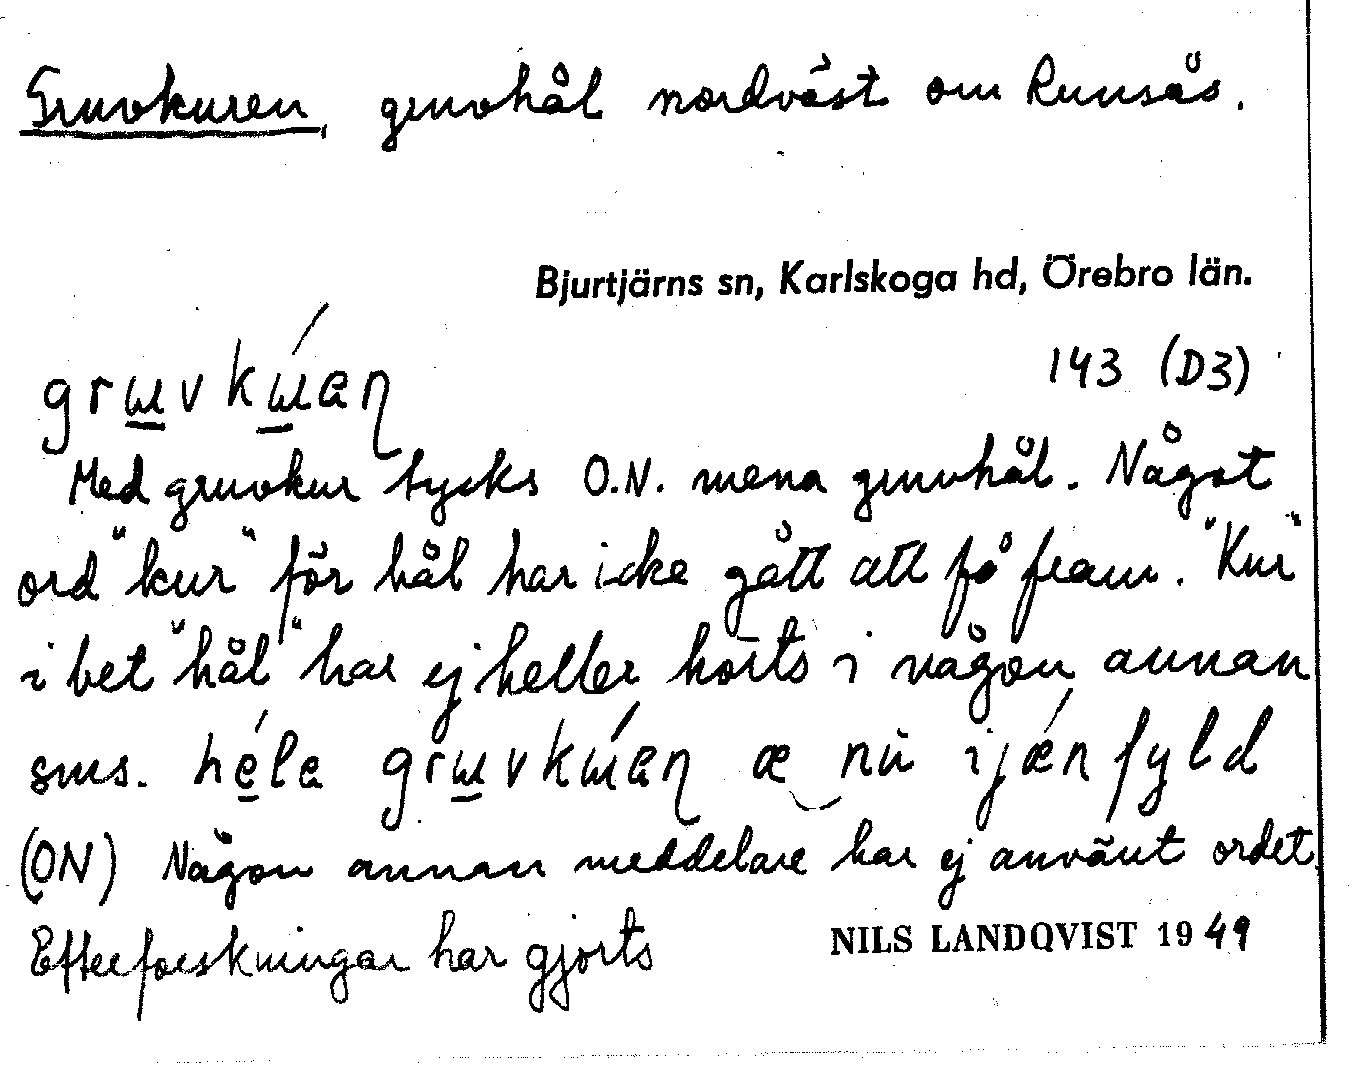 Gruvkuren, gruvhål nordväst om Runsås.
Bjurtjärns sn, Karlskoga hd, Örebro län.
143 (D3)
grɯvkɯ́aɳ
Med gruvkur tycks O.N. mena gruvhål. Något
ord "kur" för hål har icke gått att få fram. "Kur"
i bet "hål" har ej heller hörts i någon annan
sms. héla grɯvkɯ́aɳ æ nù ijǽn fyld
(ON) Någon annan meddelare har ej använt ordet.
Efterforskningar har gjorts
NILS LANDQVIST 1949